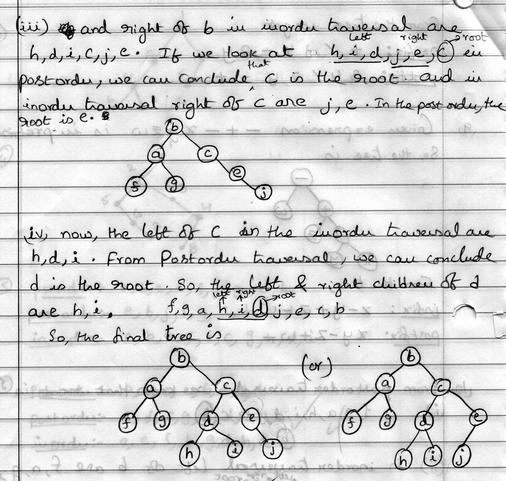 (iii) and right of b in inordu traversal are
left right root
h, d, i, c, j, e. If we look at h, i, d, j, e, c in
postordu, we can conclude that c is the root. and in
inordu traversal right of c are j, e. In the post ordu, the
root is e.
b
a c
f g e
j
iv, now, the left of c in the inordu traversal are
h, d, i. From Postordu traversal, we can conclude
d is the root. So, the left & right children of d
left right root
are h, i. f, g, a, h, i, d, j, e, c, b
So, the final tree is
b (or) b
a c a c
f g d e f g d e
h i j h i j